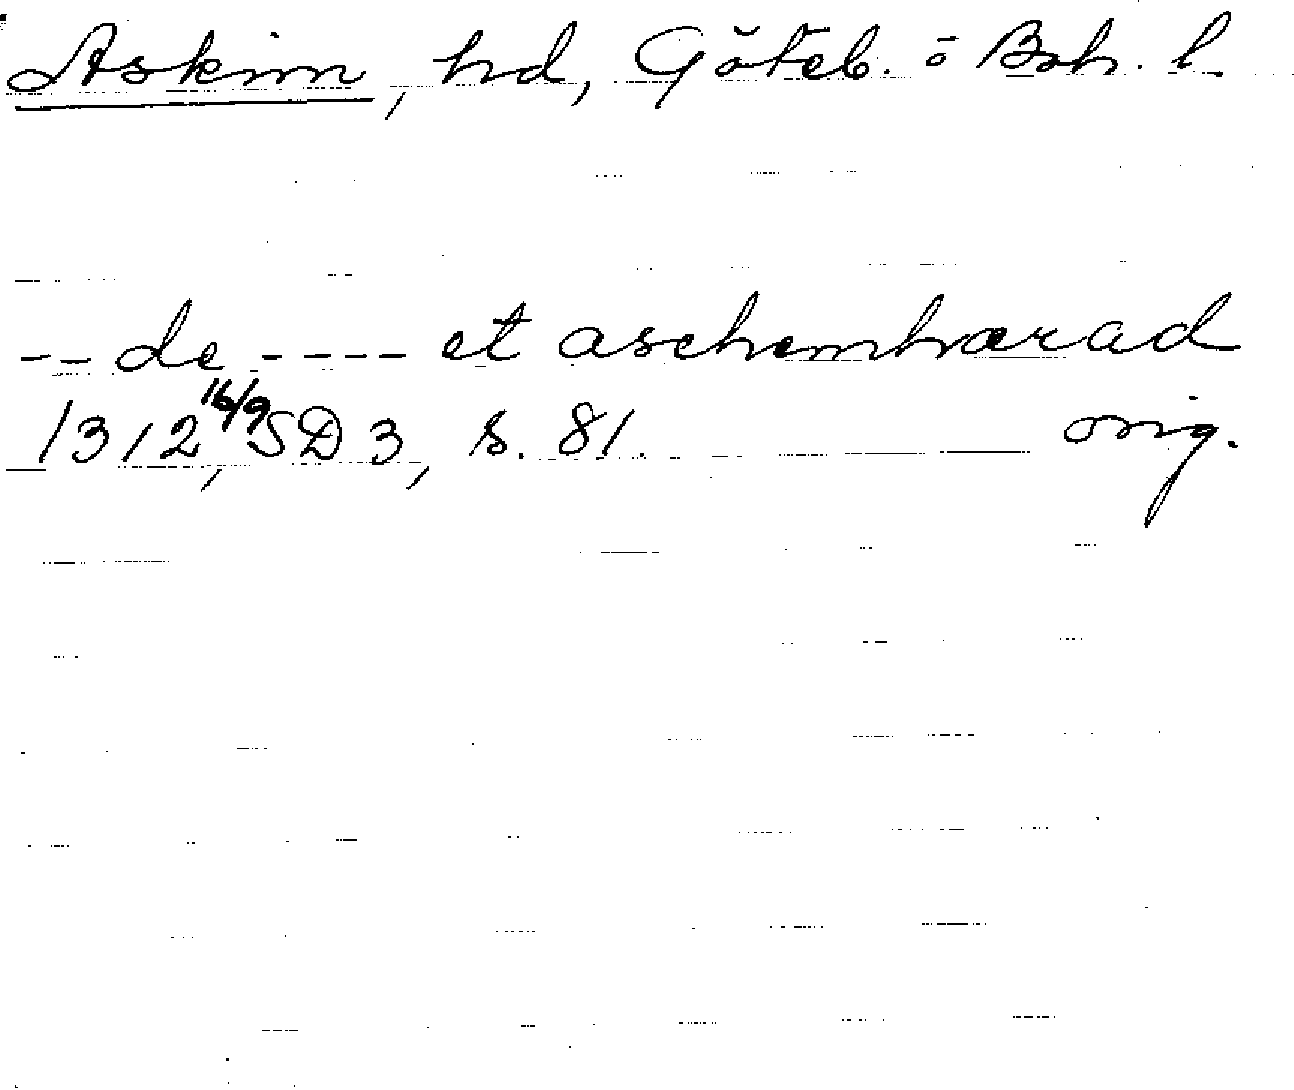 Askim, hd, Göteb. o Boh. l.
-- de ---- et aschemhærad
1312, 16/9 SD 3, s. 81. orig.